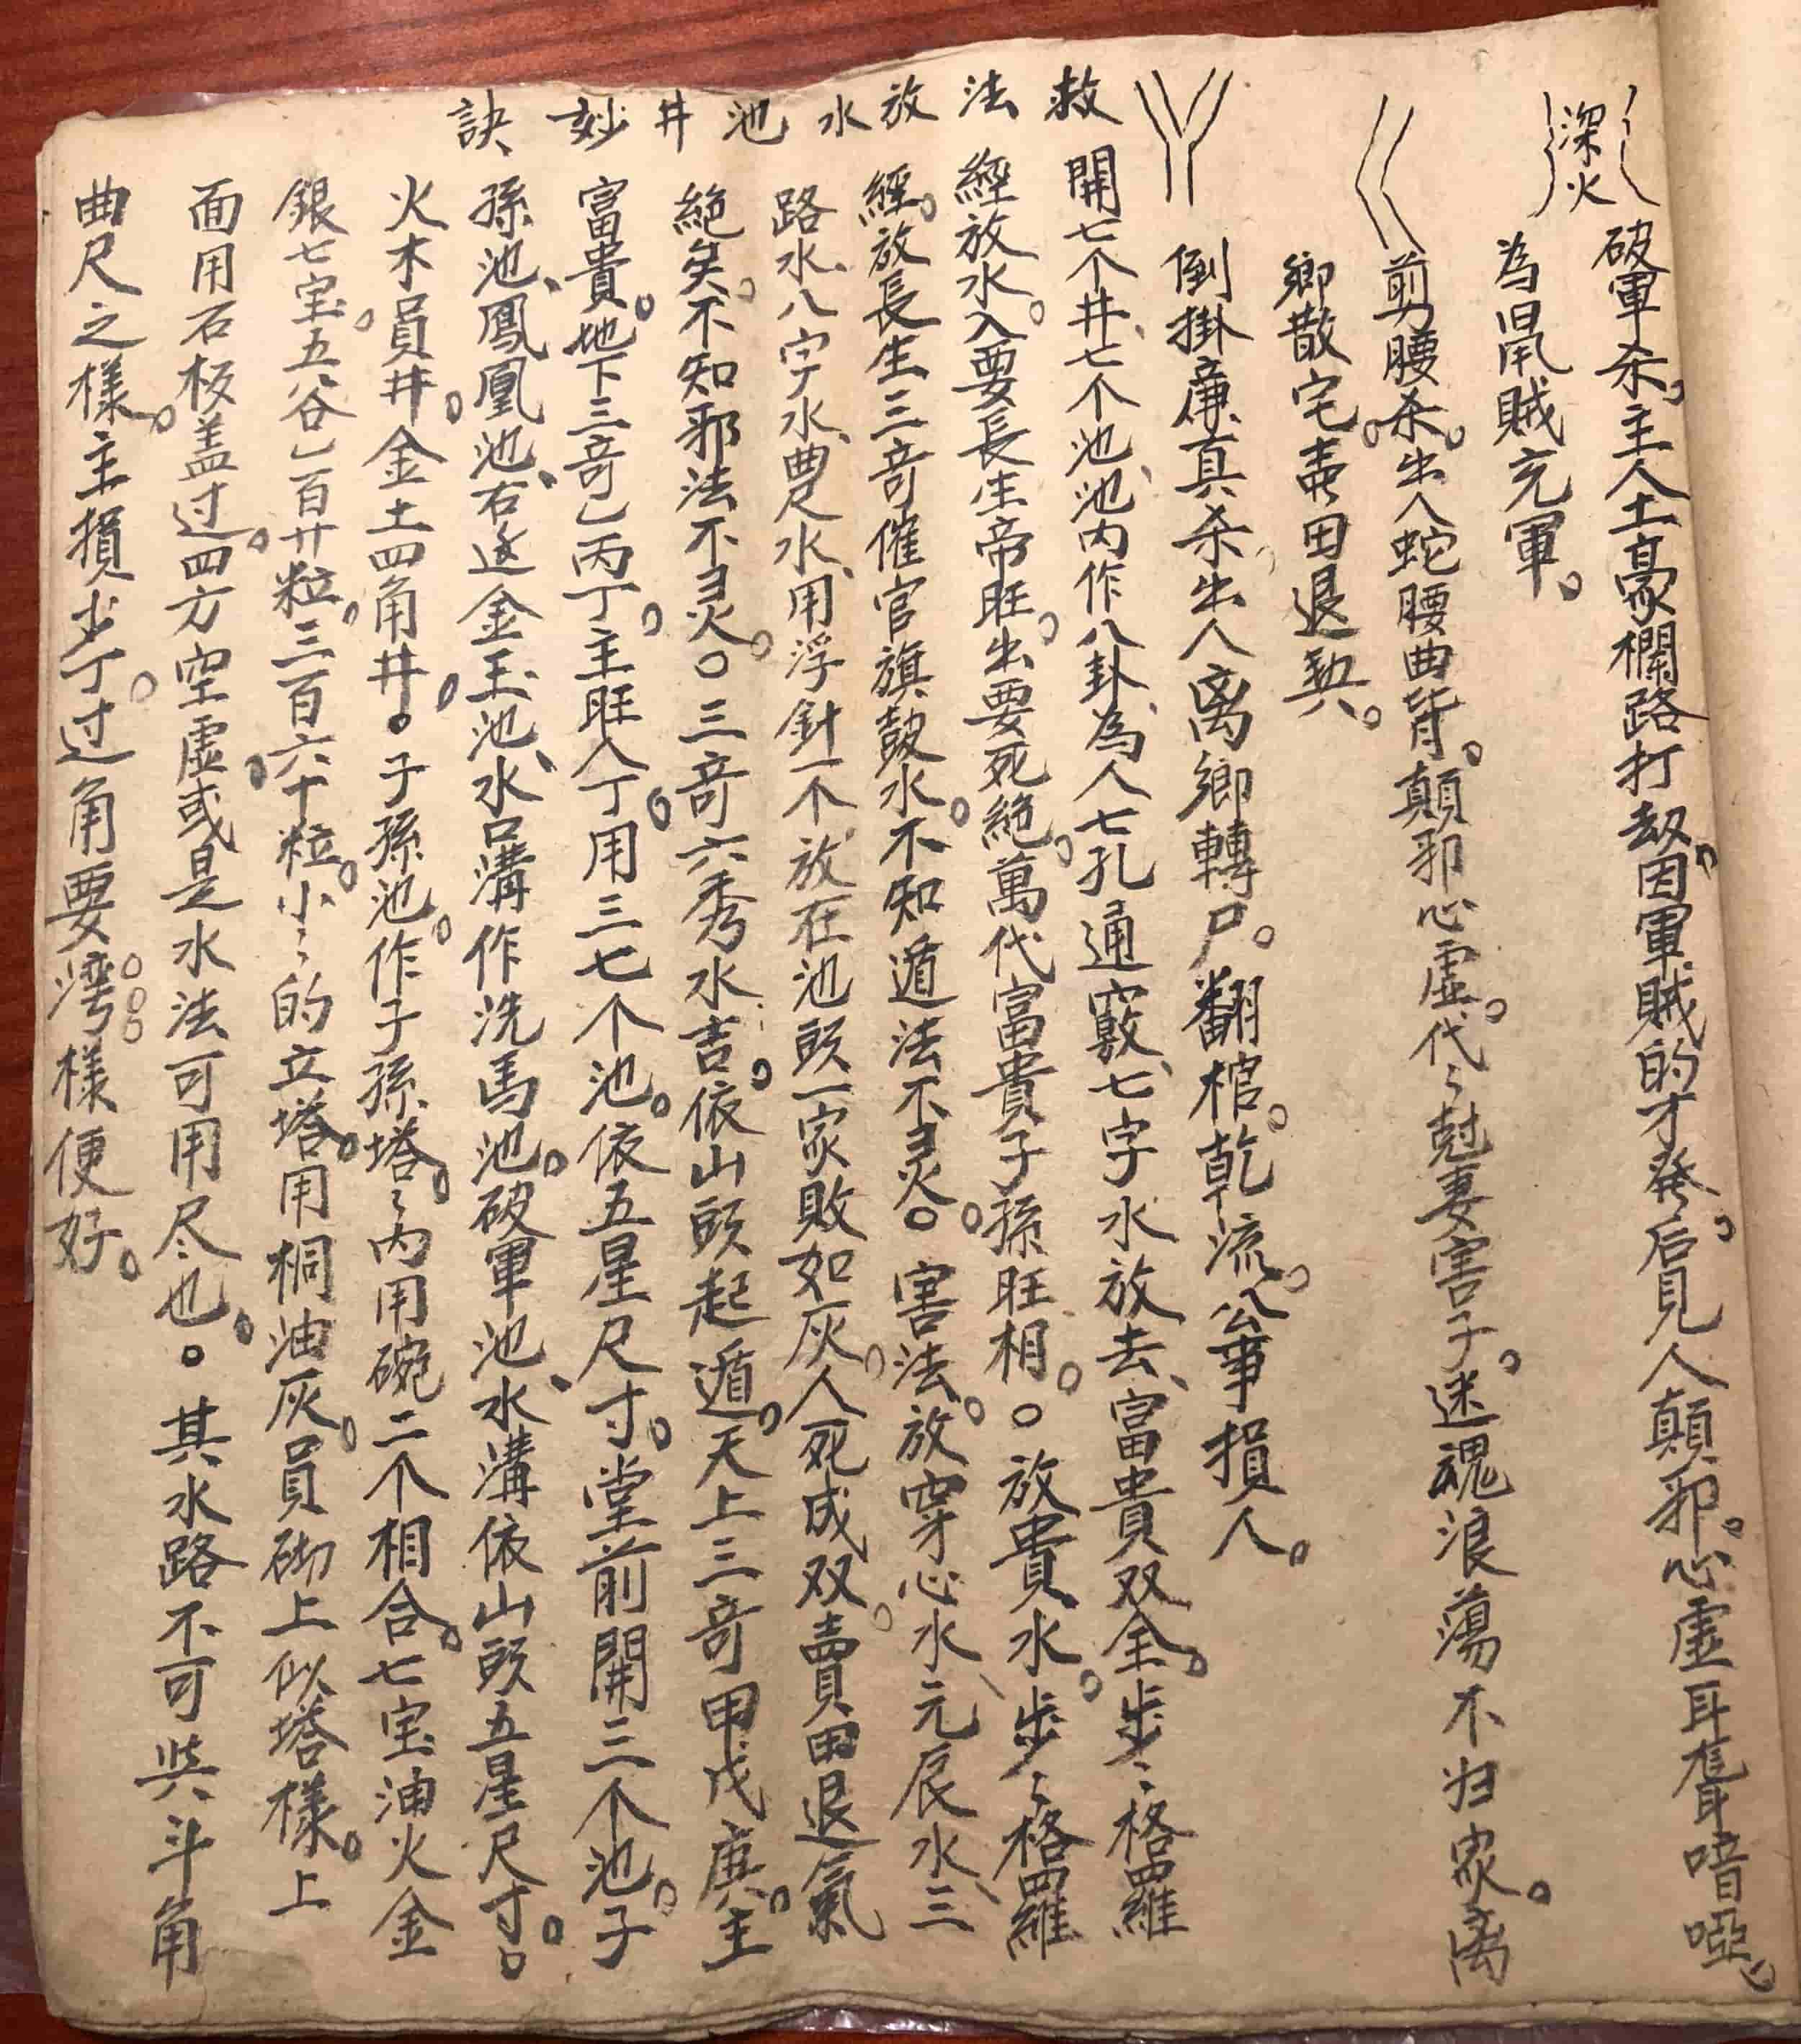 深火
破軍杀。主人土豪欄路打劫。因軍賊的才発。后見人顛邪。心虛耳聋喑啞。
為鼠賊充軍。
剪腰杀。出人蛇腰曲背。顛邪心虛。代〻尅妻害子。迷魂浪蕩不归家。离
鄉散宅。賣田退契。
倒掛廉真杀。出人离鄉轉尸。翻棺。乾流。公事損人。
救法放水池井妙訣
開七个井、七个池、池内作八卦、為人七孔通竅、七字水放去、富貴双全。步〻格羅
經放水。入要長生帝旺。出要死絕。萬代富貴子孫旺相。○放貴水。步〻格羅
經。放長生三奇催官旗鼓水。不知遁法不灵。○害法。放穿心水、元辰水、三
路水、八字水、曲尺水、用浮針一不放在池頭一家敗如灰。人死成双。賣田退氣
絕矣。不知邪法不灵。○三奇六秀水吉。依山頭起遁。天上三奇甲戊庚。主
富貴。地下三奇乙丙丁。主旺人丁。用三七个池。依五星尺寸。堂前開三个池。子
孫池、鳳凰池、右边金玉池、水口溝作洗馬池。破軍池、水溝依山頭五星尺寸。○
火木員井。金土四角井。○子孫池。作子孫塔。〻内用碗二个相合。七宝油火金
銀七宝。五谷乚百廿粒。三百六十粒。小〻的立塔。用桐油灰。員砌上似塔樣。上
面用石板盖过。四方空虛或是水法可用尽也。○其水路不可𠀤斗角
曲尺之樣。主損少丁。过角要湾。樣便好。